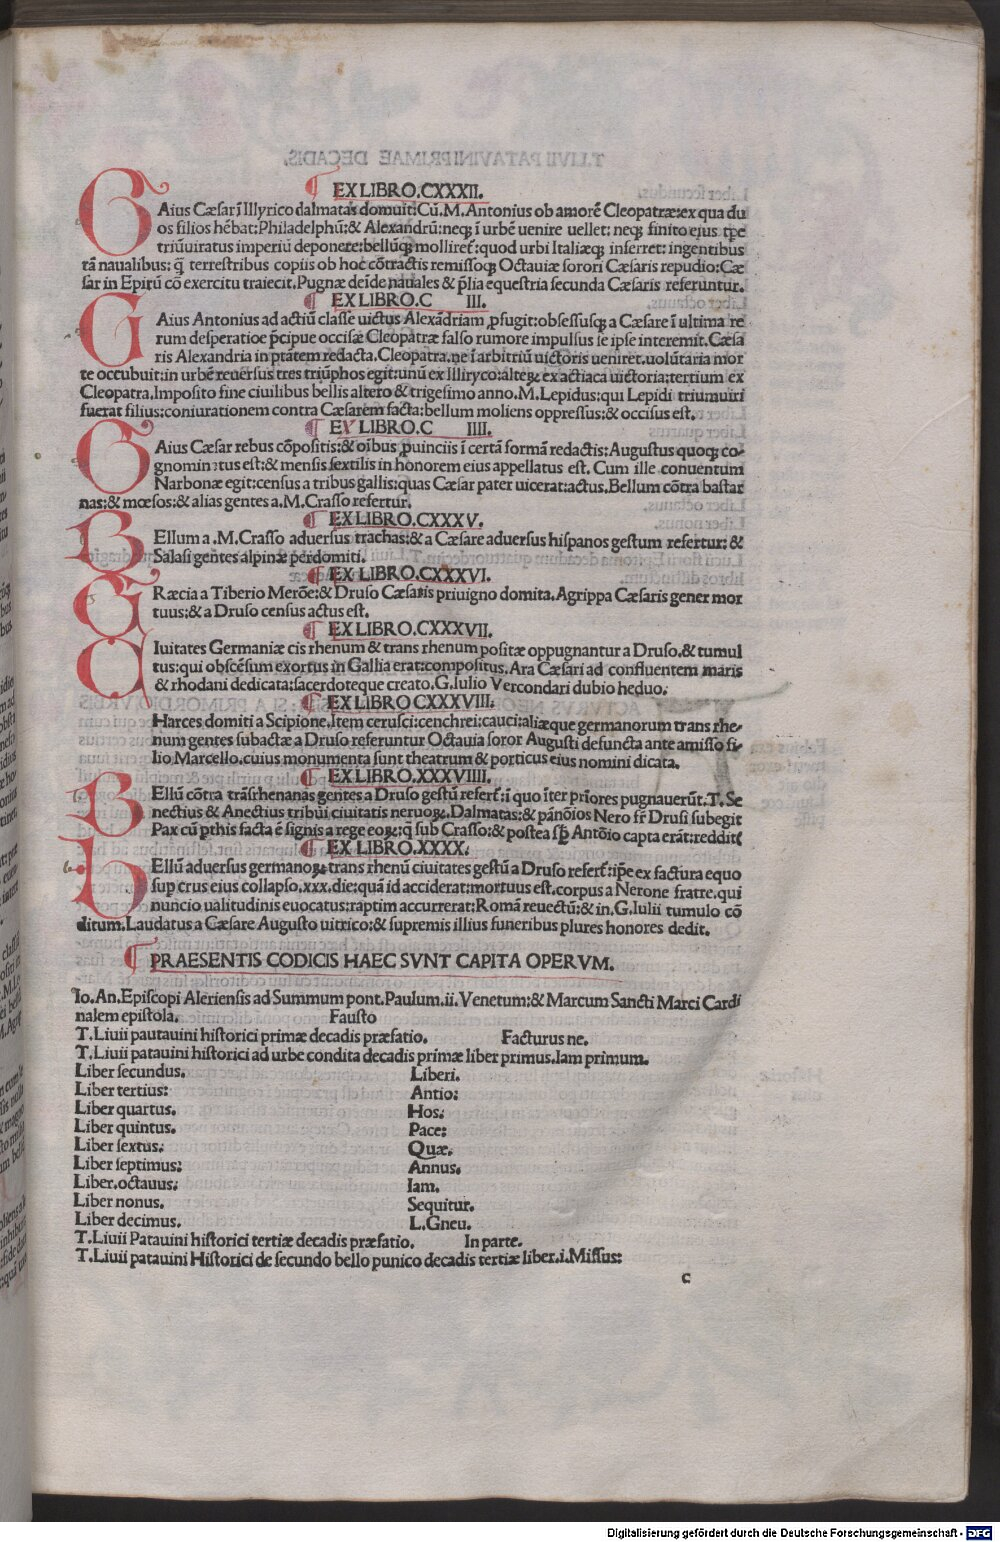 ¶ EX LIBRO.CXXXII.
GAius Cæsar ī Illyrico dalmatas domuit: Cū.M.Antonius ob amorē Cleopatræ: ex qua du
os filios hēbat: Philadelphū: & Alexandrū: neqꝫ ī urbē uenire uellet: neqꝫ finito ejus tp̄e
triūuiratus imperiū deponere: bellūqꝫ moliret᷑: quod urbi Italiæqꝫ inferret: ingentibus
tā naualibus: q̄ terrestribus copiis ob hoc cōtractis remissoqꝫ Octauiæ sorori Cæsaris repudio: Cæ
sar in Epirū cō exercitu traiecit. Pugnæ deīde nauales & p̄lia equestria secunda Cæsaris referuntur.
¶ EX LIBRO.C III.
GAius Antonius ad actiū classe uictus Alexādriam ꝓfugit: obsessusqꝫ a Cæsare ī ultima re
rum desperatioe p̄cipue occisæ Cleopatræ falso rumore impulsus se ipse interemit. Cæsa
ris Alexandria in ptātem redacta. Cleopatra. ne ī arbitriū uictoris ueniret. uolūtaria mor
te occubuit: in urbē reuersus tres triūphos egit: unū ex Illiryco: alteꝝ ex actiaca uictoria: tertium ex
Cleopatra. Imposito fine ciuilibus bellis altero & trigesimo anno. M. Lepidus: qui Lepidi triumuiri
fuerat filius: coniurationem contra Cæsarem facta: bellum moliens oppressus: & occisus est.
¶ EX LIBRO.C IIII.
GAius Cæsar rebus cōpositis: & oībus ꝓuinciis ī certā formā redactis: Augustus quoqꝫ co-
gnominatus est: & mensis sextilis in honorem eius appellatus est. Cum ille conuentum
Narbonæ egit: census a tribus gallis: quas Cæsar pater uicerat: actus. Bellum cōtra bastar
nas: & mœsos: & alias gentes a. M. Crasso refertur.
¶ EX LIBRO.CXXXV.
BEllum a .M. Crasso aduersus trachas: & a Cæsare aduersus hispanos gestum refertur: &
Salasi gentes alpinæ perdomiti.
¶ EX LIBRO.CXXXVI.
GRæcia a Tiberio Merōe: & Druso Cæsaris priuigno domita. Agrippa Cæsaris gener mor
tuus: & a Druso census actus est.
¶ EX LIBRO.CXXXVII.
CIuitates Germaniæ cis rhenum & trans rhenum positæ oppugnantur a Druso. & tumul
tus: qui obscēsum exortus in Gallia erat: compositus. Ara Cæsari ad confluentem maris
& rhodani dedicata: sacerdoteque creato. G. Iulio Vercondari dubio heduo.
¶ EX LIBRO CXXXVIII.
Harces domiti a Scipione. Item cerusci: cenchrei: cauci: aliæque germanorum trans rhe-
num gentes subactæ a Druso referuntur Octauia soror Augusti defuncta ante amisso fi-
lio Marcello. cuius monumenta sunt theatrum & porticus eius nomini dicata.
¶ EX LIBRO. XXXVIIII.
BEllū cōtra trāsrhenanas gentes a Druso gestū refert᷑: ī quo īter priores pugnauerūt. T. Se
nectius & Anectius tribūi ciuitatis neruoꝝ. Dalmatas: & pānōios Nero fr̄ Drusi subegit
Pax cū pthis facta ē signis a rege eoꝝ: q̄ sub Crasso: & postea sb̄ Antōio capta erāt: redditꝭ
¶ EX LIBRO. XXXX.
BEllū aduersus germanoꝝ trans rhenū ciuitates gestū a Druso refert᷑: ip̄e ex factura equo
sup crus eius collapso. xxx. die: quā id acciderat: mortuus est. corpus a Nerone fratre. qui
nuncio ualitudinis euocatus: raptim accurrerat: Romā reuectū: & in. G. Iulii tumulo cō
ditum. Laudatus a Cæsare Augusto uitrico: & supremis illius funeribus plures honores dedit.
¶ PRAESENTIS CODICIS HAEC SVNT CAPITA OPERVM.
Io. An. Episcopi Aleriensis ad Summum pont. Paulum. ii. Venetum: & Marcum Sancti Marci Cardi
nalem epistola. Fausto
T. Liuii pautauini historici primæ decadis præfatio. Facturus ne.
T. Liuii patauini historici ad urbe condita decadis primæ liber primus. Iam primum.
Liber secundus. Liberi.
Liber tertius: Antio:
Liber quartus. Hos:
Liber quintus. Pace:
Liber sextus. Quæ.
Liber septimus: Annus.
Liber. octauus: Iam.
Liber nonus. Sequitur.
Liber decimus. L. Gneu.
T. Liuii Patauini historici tertiæ decadis præfatio. In parte.
T. Liuii patauini Historici de secundo bello punico decadis tertiæ liber. i. Missus:
c
Digitalisierung gefördert durch die Deutsche Forschungsgemeinschaft - DFG